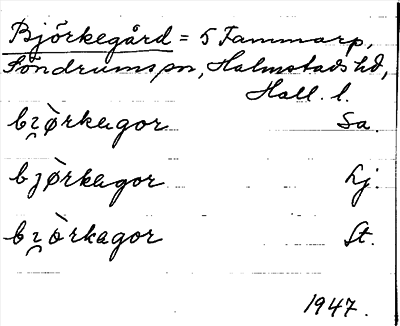 Björkegård = 5 Tammarp,
Söndrums sn, Halmstads hd,
Hall. l.
bi̯ò̷rkagor Sa.
bjò̷rkagor Lj.
bi̯òrkagor St.
1947.